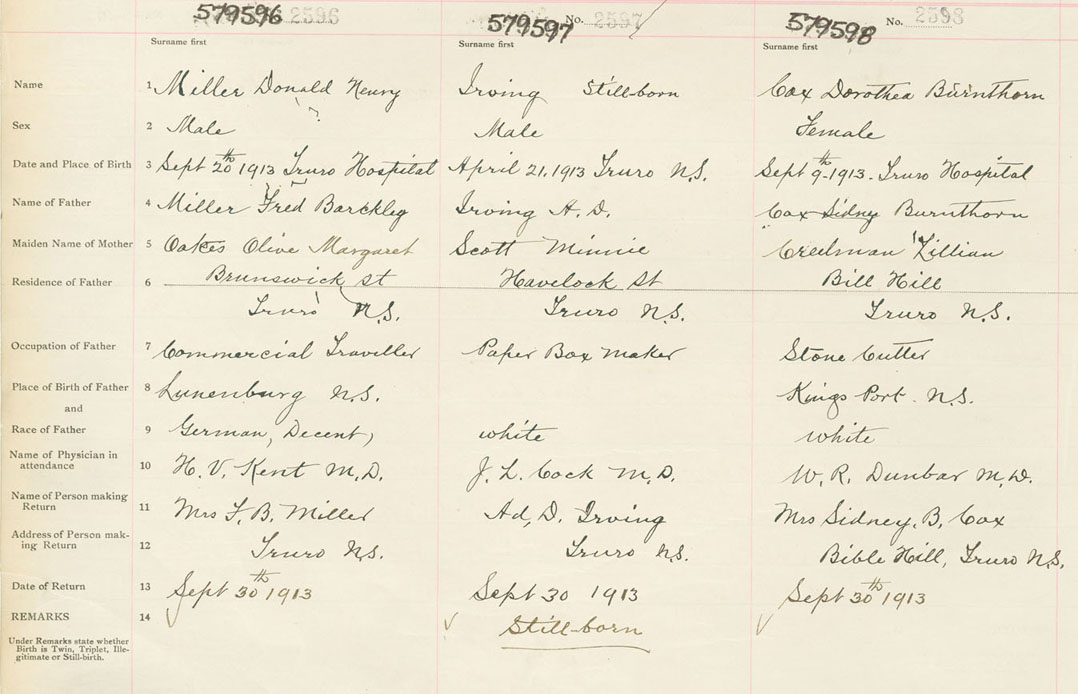 579596 2596 579597 No. 2597 579598 No. 2598
Surname first Surname first Surname first
Name 1 Miller Donald Henry Irving Still-born Cox Dorothea Burnthorn
?
Sex 2 Male Male Female
Date and Place of Birth 3 Sept 20th 1913 Truro Hospital April 21, 1913 Truro N.S. Sept 9th 1913 - Truro Hospital
Name of Father 4 Miller Fred Barckley Irving A. D. Cox Sidney Burnthorn
Maiden Name of Mother 5 Oakes Olive Margaret Scott Minnie Creelman Lillian
Residence of Father 6 Brunswick St Havelock St Bill Hill
Truro N.S. Truro N.S. Truro N.S.
Occupation of Father 7 Commercial Traveller Paper Box Maker Stone Cutter
Place of Birth of Father 8 Lunenburg N.S. Kings Port. N.S.
and
Race of Father 9 German, Decent, white white
Name of Physician in
attendance 10 H. V. Kent M.D. J. L. Cock M.D. W. R. Dunbar M.D.
Name of Person making
Return 11 Mrs F. B. Miller Ad, D. Irving Mrs Sidney. B. Cox
Address of Person mak-
ing Return 12 Truro N.S. Truro N.S. Bible Hill, Truro N.S.
Date of Return 13 Sept 30th 1913 Sept 30 1913 Sept 30th 1913
REMARKS 14 Still-born
Under Remarks state whether
Birth is Twin, Triplet, Ille-
gitimate or Still-birth.